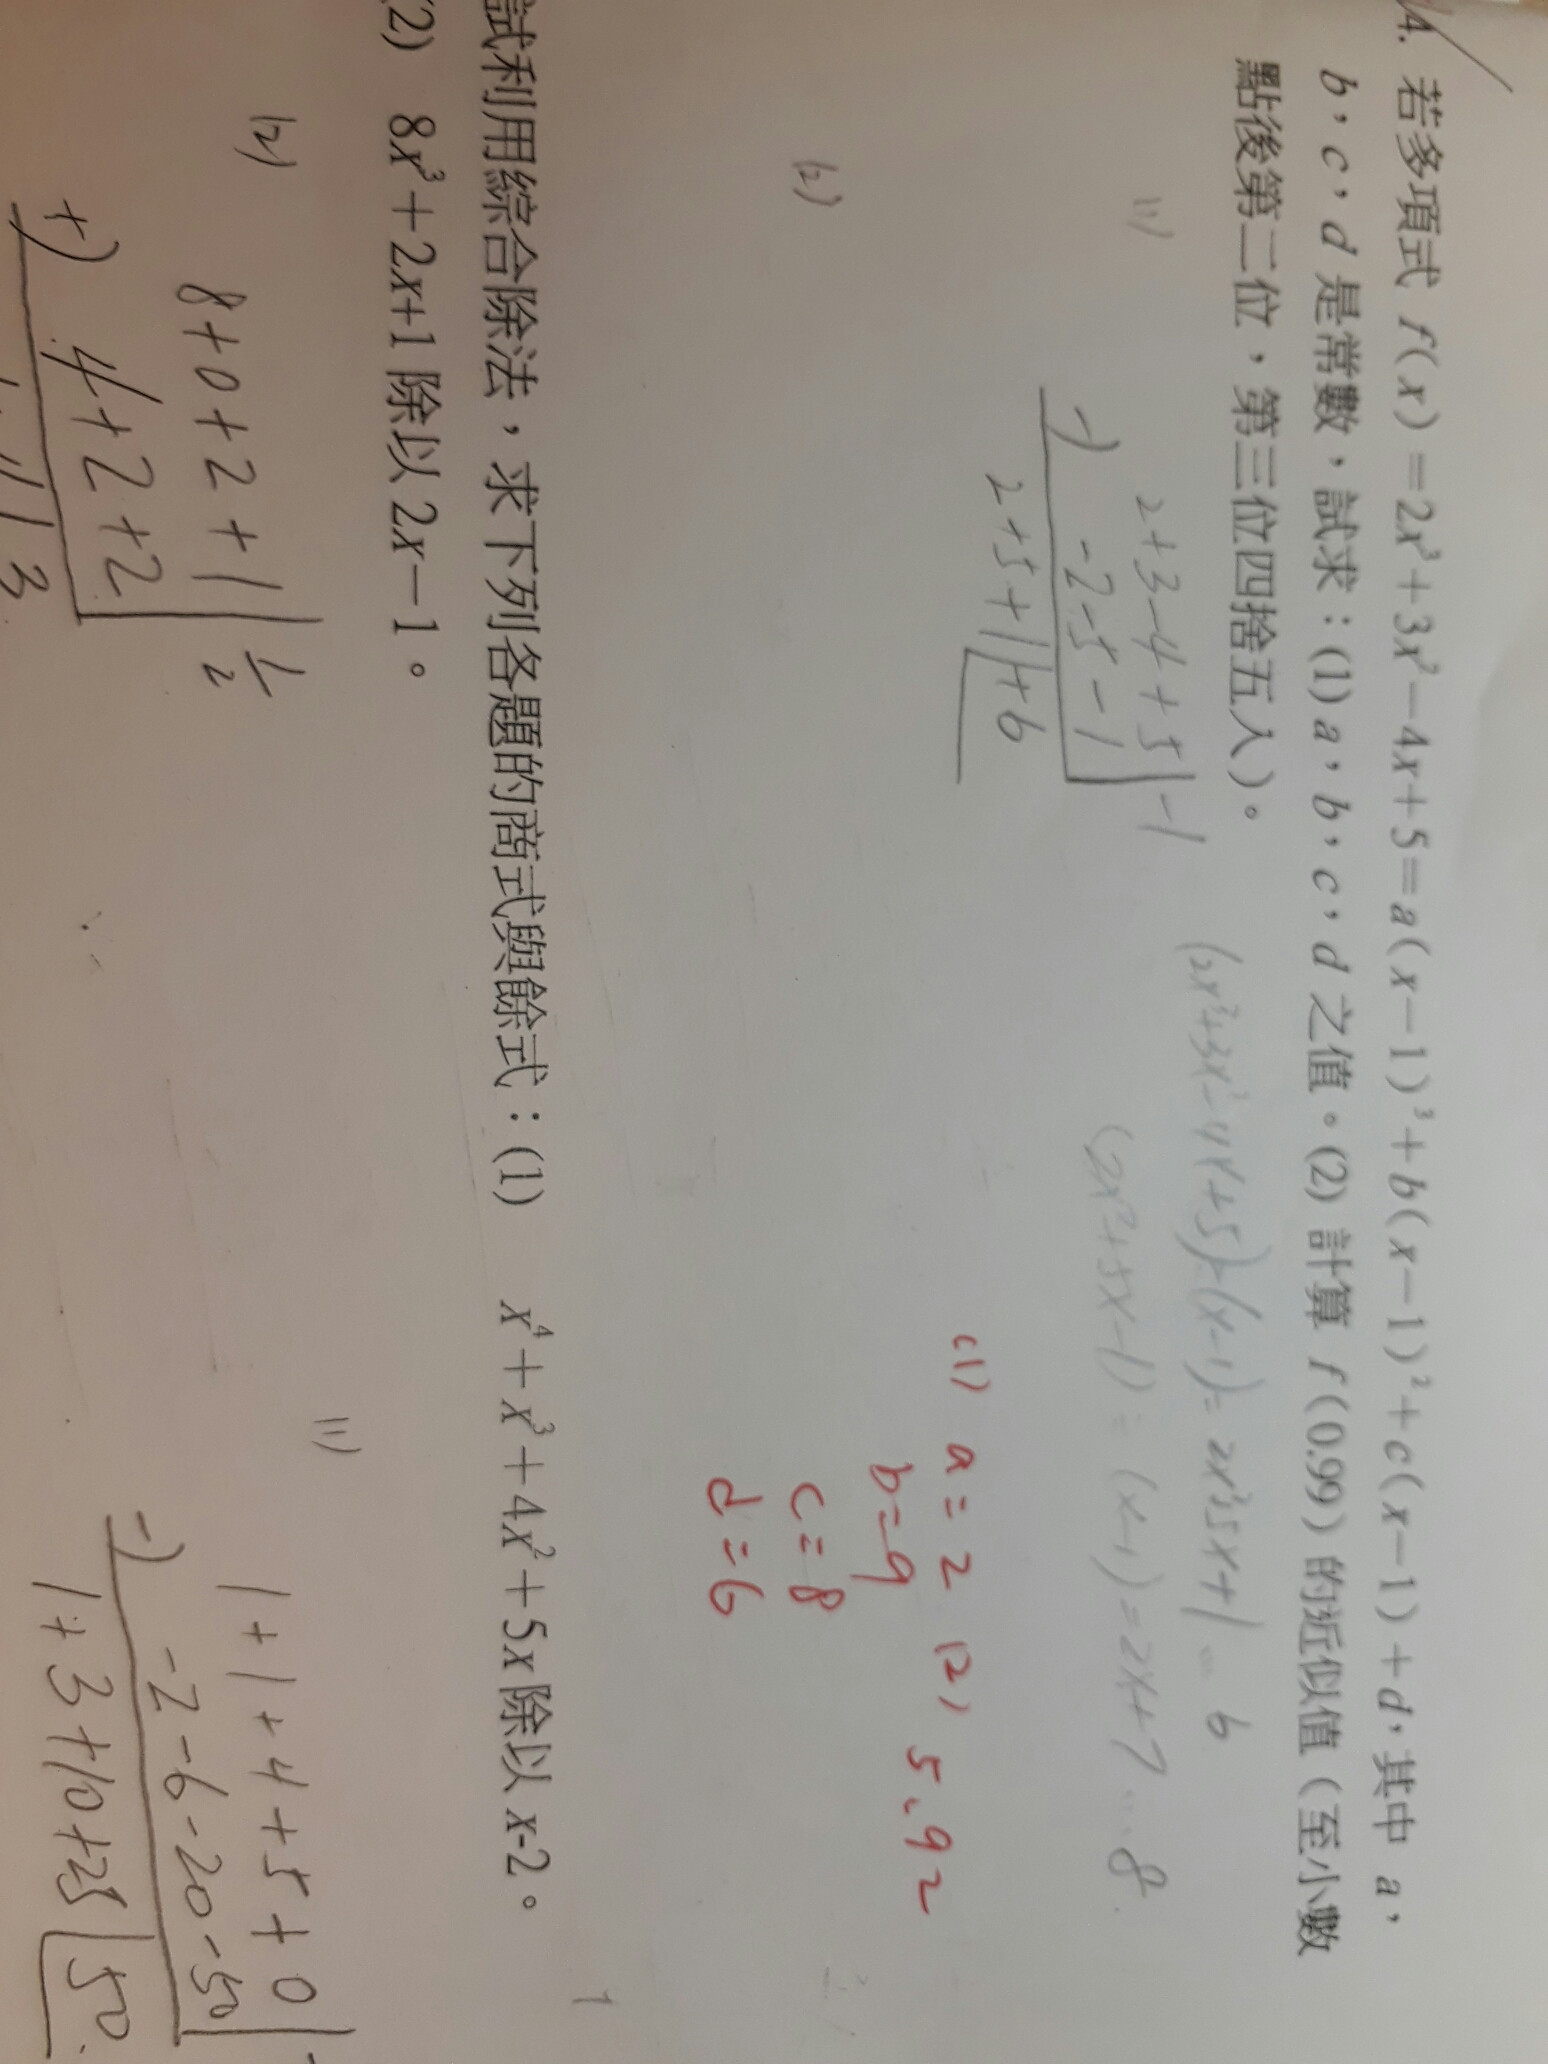 14. 若多項式 f(x)=2x³+3x²-4x+5=a(x-1)³+b(x-1)²+c(x-1)+d,其中 a,
b,c,d 是常數,試求:(1) a,b,c,d 之值。(2) 計算 f(0.99) 的近似值(至小數
點後第二位,第三位四捨五入)。
(1)
2+3-4+5|-1
-) -2-5-1
2+5+1|+6
(2x³+3x²-4x+5)÷(x-1)=2x²5x+1…6
(2x²+5x-1)÷(x-1)=2x+7…8
(2)
(1) a=2 (2) 5.92
b=9
c=8
d=6
試利用綜合除法,求下列各題的商式與餘式:(1) x⁴+x³+4x²+5x除以x-2。
(2) 8x³+2x+1除以2x-1。
(2)
8+0+2+1|1/2
+) 4+2+2
3
(1)
1+1+4+5+0
-) -2-6-20-50
1+3+10+25|50